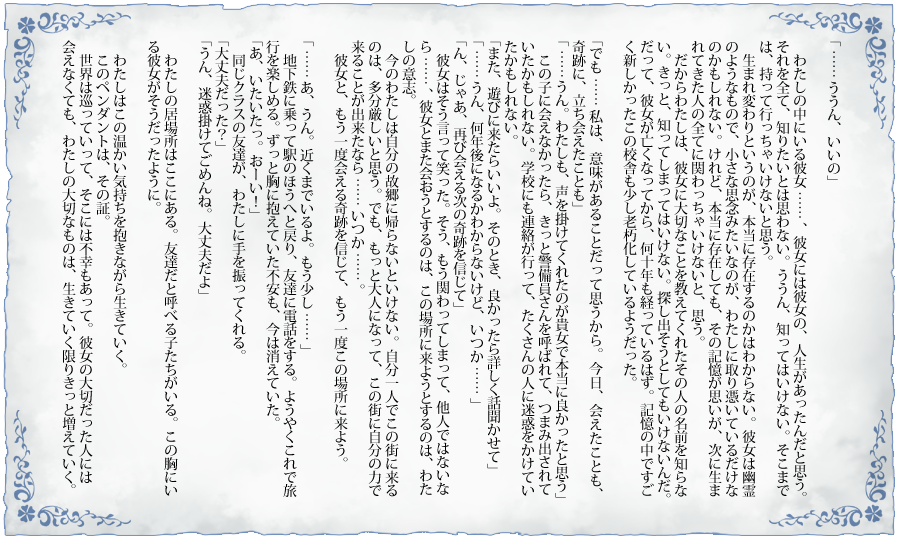 「……ううん、いいの」
　わたしの中にいる彼女……、彼女には彼女の、人生があったんだと思う。
それを全て、知りたいとは思わない。ううん、知ってはいけない。そこまで
は、持って行っちゃいけないと思う。
　生まれ変わりというのが、本当に存在するのかはわからない。彼女は幽霊
のようなもので、小さな思念みたいなのが、わたしに取り憑いているだけな
のかもしれない。けれど、本当に存在しても、その記憶が思いが、次に生ま
れてきた人の全てに関わっちゃいけない、と思う。
　だからわたしは、彼女に大切なことを教えてくれたその人の名前を知らな
い。きっと、知ってしまってはいけない。探し出そうとしてもいけないんだ。
だって、彼女が亡くなってから、何十年も経っているはず。記憶の中ですご
く新しかったこの校舎も少し老朽化しているようだった。
「でも……私は、意味があることだって思うから。今日、会えたことも、
奇跡に、立ち会えたことも」
「……うん。わたしも、声を掛けてくれたのが貴女で本当に良かったと思う」
　この子に会えなかったら、きっと警備員さんを呼ばれて、つまみ出されて
いたかもしれない。学校にも連絡が行って、たくさんの人に迷惑をかけてい
たかもしれない。
「また、遊びに来たらいいよ。そのとき、良かったら詳しく話聞かせて」
「……うん、何年後になるかわからないけど、いつか……」
「ん、じゃあ、再び会える次の奇跡を信じて」
　彼女はそう言って笑った。そう、もう関わってしまって、他人ではないな
ら……、彼女とまた会おうとするのは、この場所に来ようとするのは、わた
しの意志。
　今のわたしは自分の故郷に帰らないといけない。自分一人でこの街に来る
のは、多分厳しいと思う。でも、もっと大人になって、この街に自分の力で
来ることが出来たなら……、いつか……。
　彼女と、もう一度会える奇跡を信じて、もう一度この場所に来よう。
「……あ、うん。近くまでいるよ。もう少し……」
　地下鉄に乗って駅のほうへと戻り、友達に電話をする。ようやくこれで旅
行を楽しめる。ずっと胸に抱えていた不安も、今は消えていた。
「あ、いたいたっ。おーい！」
　同じクラスの友達が、わたしに手を振ってくれる。
「大丈夫だった？」
「うん、迷惑掛けてごめんね。大丈夫だよ」
　わたしの居場所はここにある。友達だと呼べる子たちがいる。この胸にい
る彼女がそうだったように。
　わたしはこの温かい気持ちを抱きながら生きていく。
　このペンダントは、その証。
　世界は巡っていって、そこには不幸もあって。彼女の大切だった人には
会えなくても、わたしの大切なものは、生きていく限りきっと増えていく。